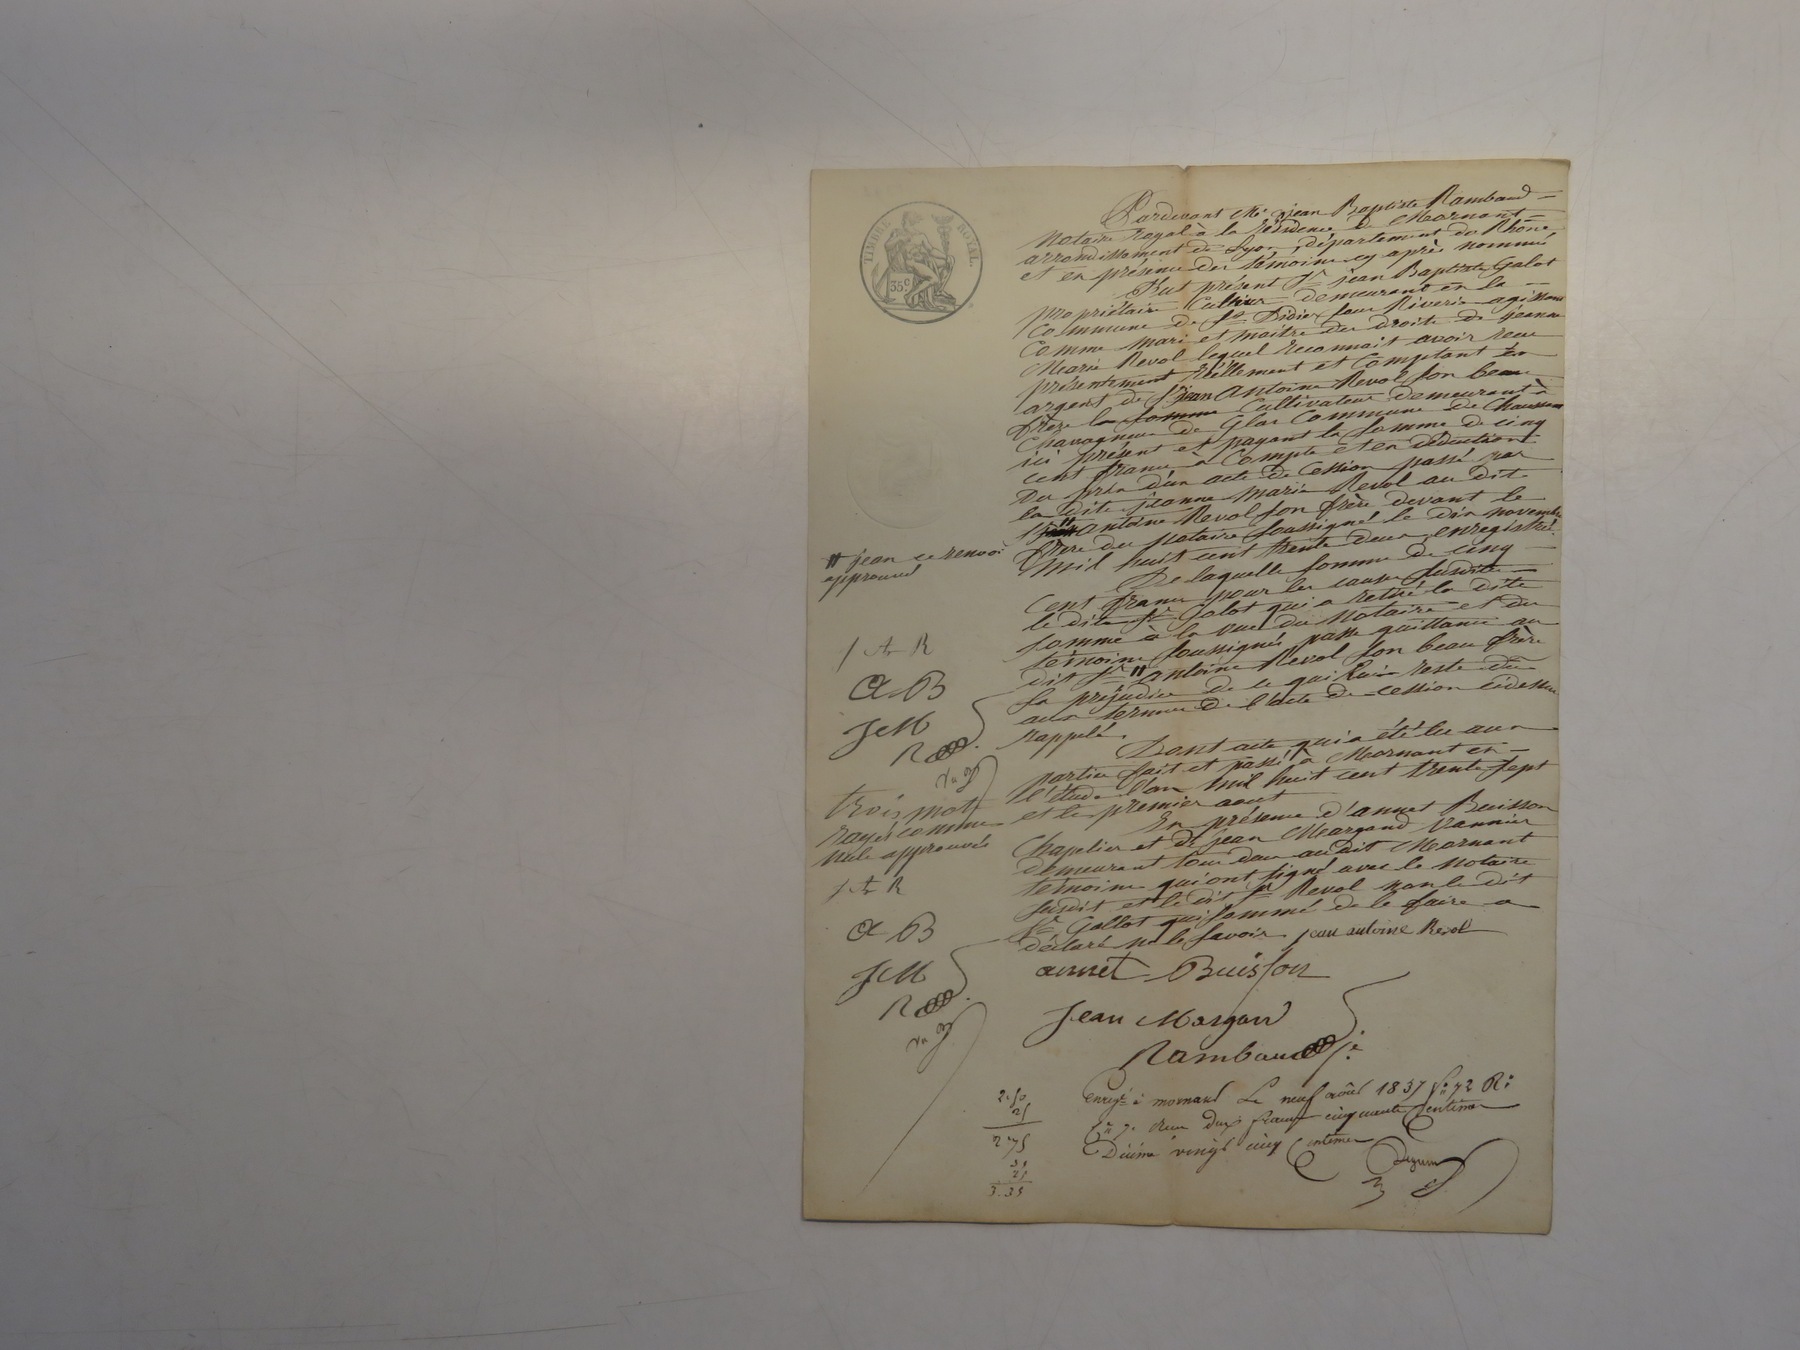 TIMBRE ROYAL.
35c
Pardevant Me jean Baptiste Rambaud
Notaire royal à la résidence de Mornant
arrondissement de Lyon, département du Rhône,
et en présence des témoins cy après nommés
Fut présent Sr jean Baptiste Galot
propriétaire Cultivr demeurant en la
Commune de St Didier sous Riverie agissant
Comme mari et maitre des droits de jeanne
Marie Revol lequel reconnait avoir reçu
présentement réellement et Comptant en
argent de Sr jean Antoine Revol son beau
frère la somme Cultivateur demeurant à
Chavagneux de Glas Commune de Chaussan
ici présent et payant la somme de cinq
cent francs à Compte et en déduction
du prix d'un acte de Cession passé par
la dite jeanne Marie Revol au dit
Sr Antoine Revol son frère devant le
frère du notaire soussigné le dix novembre
mil huit cent trente deux enregistré.
De laquelle somme de cinq
Cent francs pour les causes susdites
le dit Sr Galot qui a retiré la dite
somme à la vue du Notaire et des
témoins soussignés passe quittance au
dit Sr # antoine Revol son beau frère
sa préjudice de ce qui lui reste dû
aux termes de l'acte de cession cidessus
rappelé.
# jean ce renvoi
approuvé
J At R
A B
J M
R
Dont acte qui a été lu aux
parties fait et passé à Mornant en
l'étude l'an mil huit cent trente sept
et le premier aout
En présence d'annet Buisson
Chapelier et de jean Margand Vannier
demeurant tous deux au dit Mornant
témoins qui ont signé avec le notaire
susdit et le dit Sr Revol non le dit
Sr Gallot qui sommé de le faire a
déclaré ne le savoir. jean antoine Revol
trois mots
rayés comme
nuls approuvés
J At R
A B
J M
R
annet Buisson
Jean Margand
Rambaud
Enregé à mornant Le neuf août 1837 fo 72 Ro
Co 7. reçu deux francs cinquante Centimes
Décime vingt cinq Centimes
2.50
25
2 75
3.35